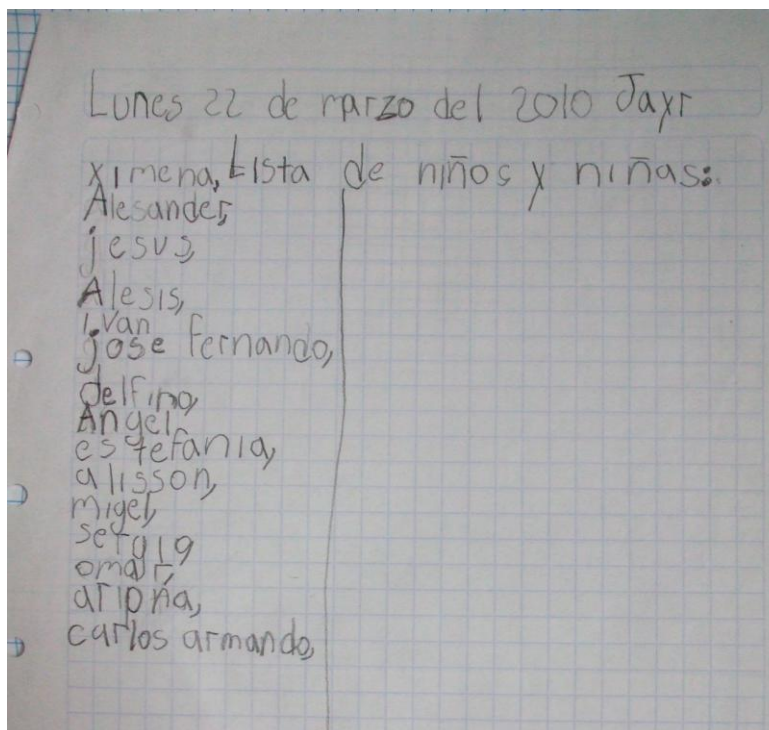 Lunes 22 de marzo del 2010 Jayr
Ximena, Lista de niños y niñas:
Alesander,
jesus,
Alesis,
Ivan
jose fernando,
delfino,
Angel,
estefania,
alisson,
migel,
omar,
carlos armando,